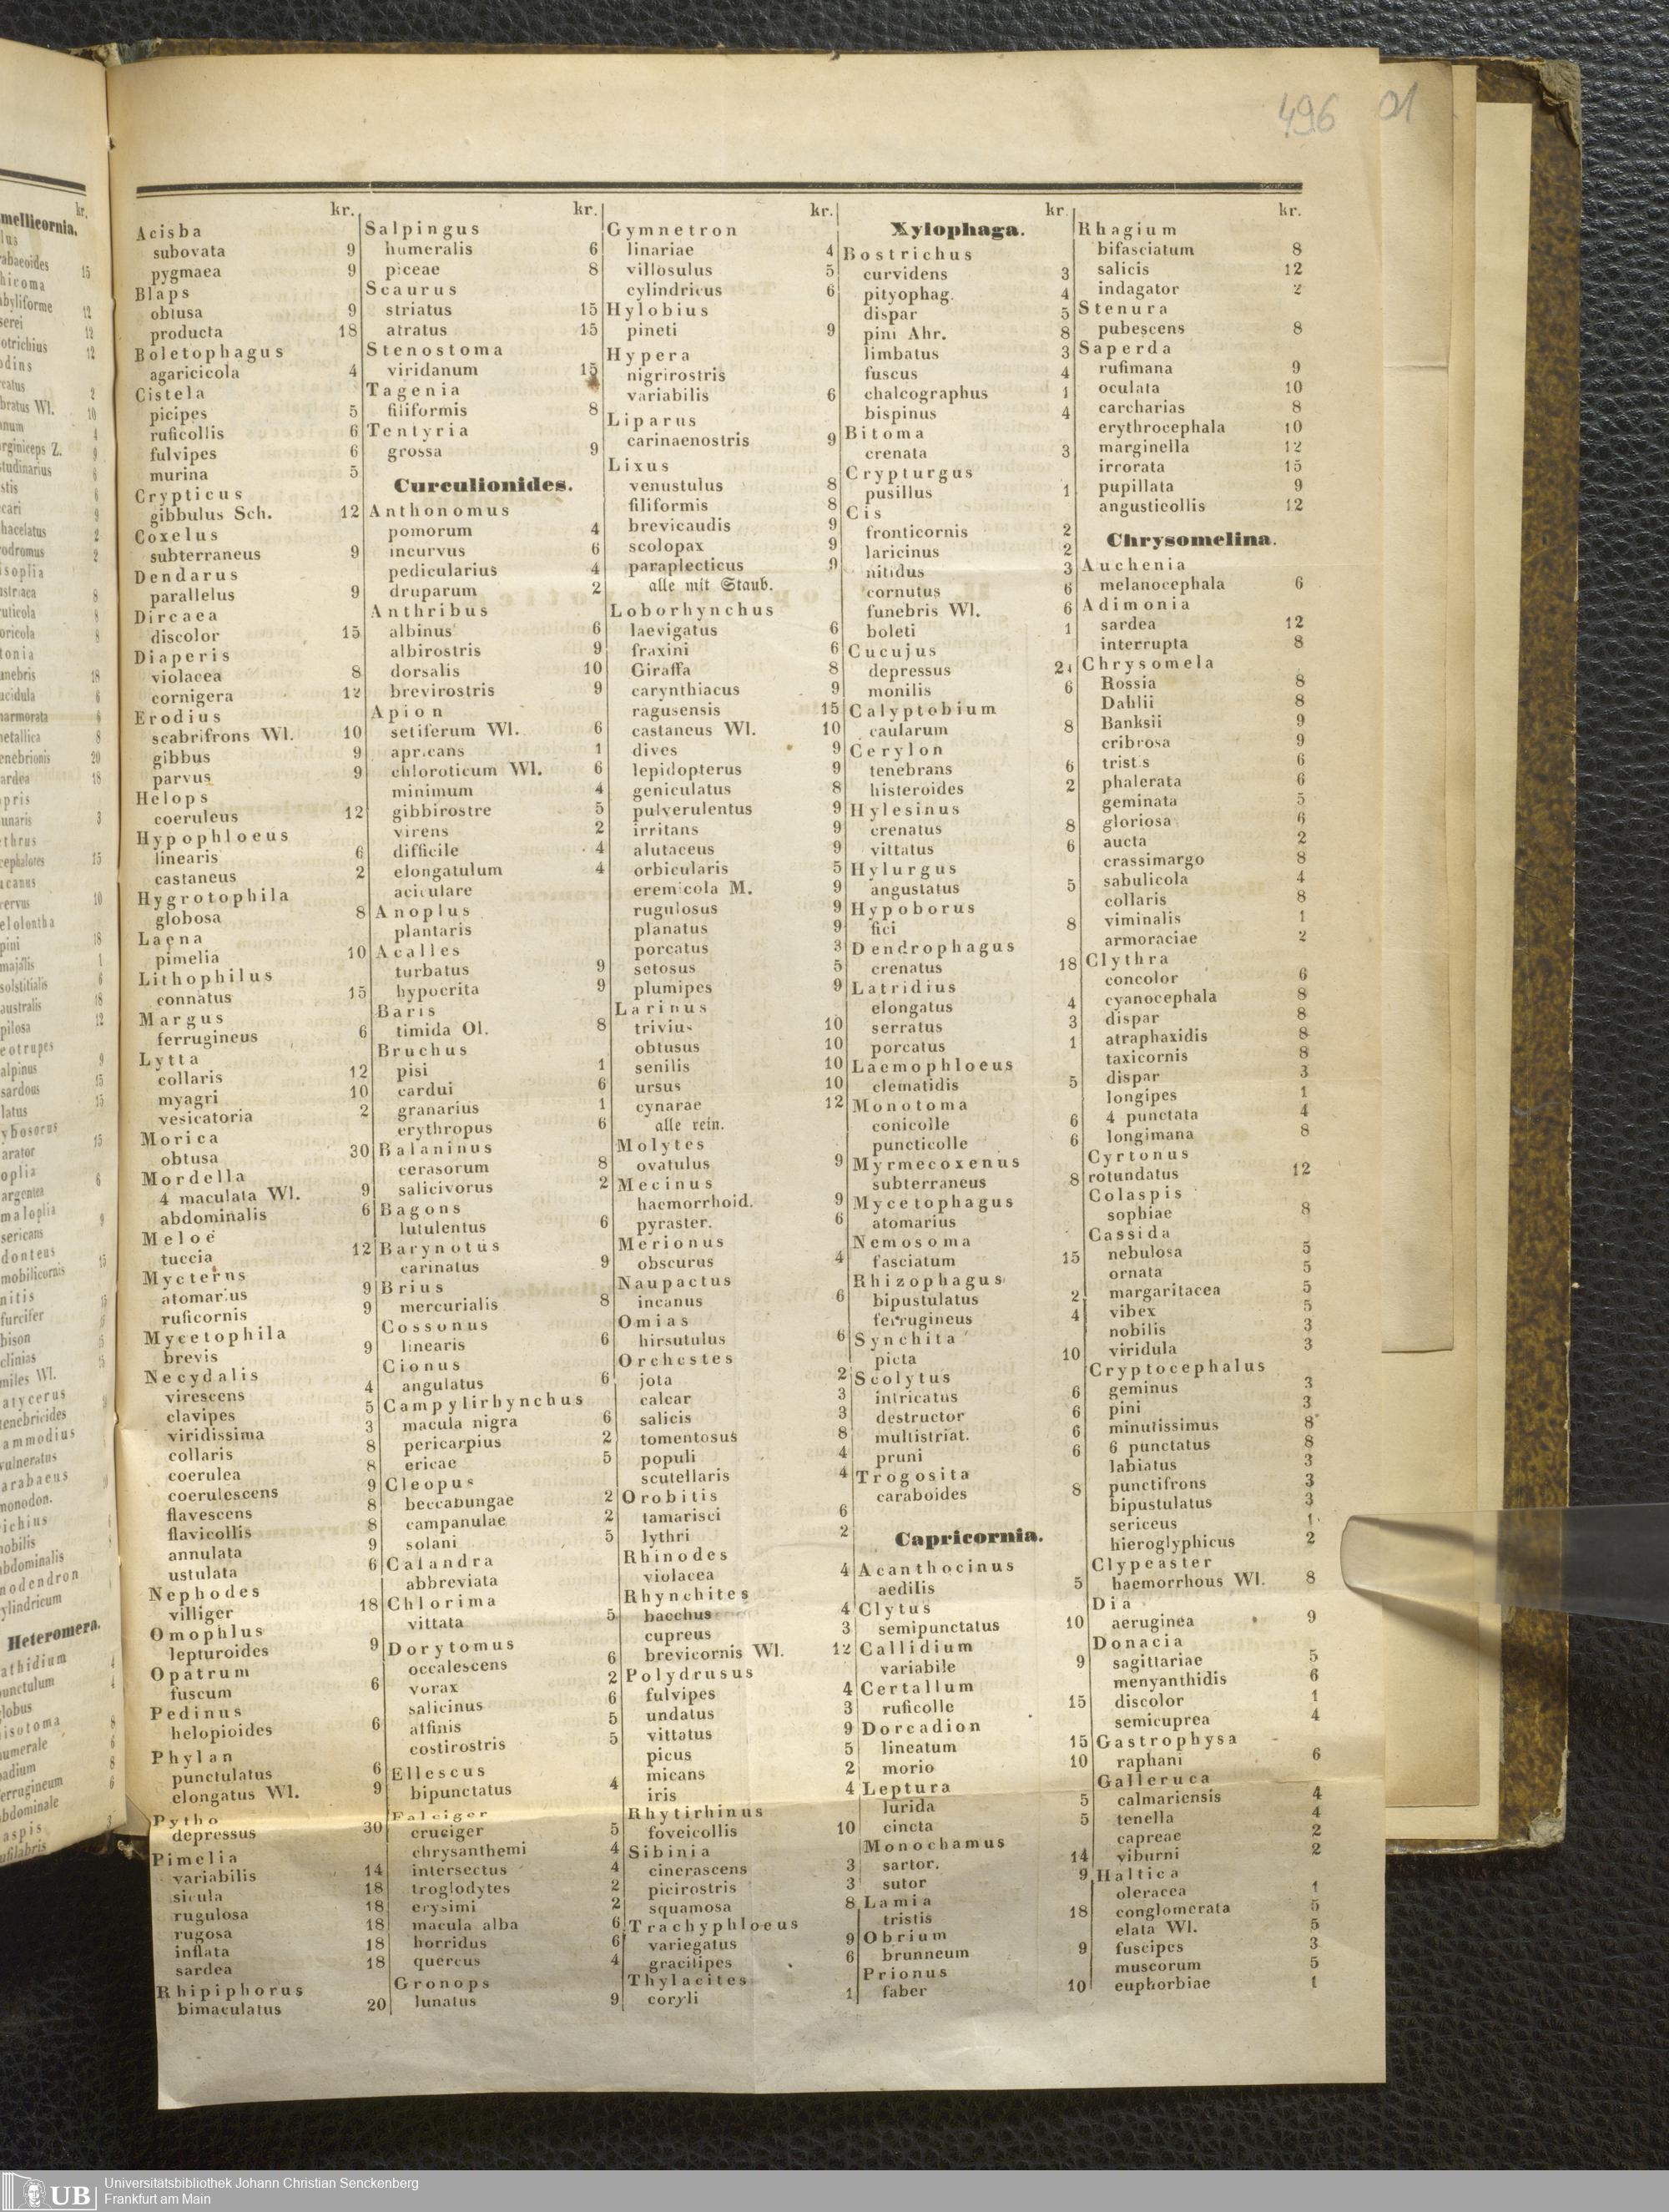 496 01
kr.
Acisba
subovata 9
pygmaea 9
Blaps
obtusa 9
producta 18
Boletophagus
agaricicola 4
Cistela
picipes 5
ruficollis 6
fulvipes 6
murina 5
Crypticus
gibbulus Sch. 12
Coxelus
subterraneus 9
Dendarus
parallelus 9
Dircaea
discolor 15
Diaperis
violacea 8
cornigera 12
Erodius
scabrifrons Wl. 10
gibbus 9
parvus 9
Helops
coeruleus 12
Hypophloeus
linearis 6
castaneus 2
Hygrotophila
globosa 8
Laena
pimelia 10
Lithophilus
connatus 15
Margus
ferrugineus 6
Lytta
collaris 12
myagri 10
vesicatoria 2
Morica
obtusa 30
Mordella
4 maculata Wl. 9
abdominalis 6
Meloë
tuccia 12
Mycterns
atomarius 9
ruficornis 9
Mycetophila
brevis 9
Necydalis
virescens 4
clavipes 5
viridissima 3
collaris 8
coerulea 8
coerulescens 9
flavescens 8
flavicollis 8
annulata 9
ustulata 6
Nephodes
villiger 18
Omophlus
lepturoides 9
Opatrum
fuscum 6
Pedinus
helopioides 6
Phylan
punctulatus 6
elongatus Wl. 9
Pytho
depressus 30
Pimelia
variabilis 14
sicula 18
rugulosa 18
rugosa 18
inflata 18
sardea 18
Rhipiphorus
bimaculatus 20
kr.
Salpingus
humeralis 6
piceae 8
Scaurus
striatus 15
atratus 15
Stenostoma
viridanum 15
Tagenia
filiformis 8
Tentyria
grossa 9
Curculionides.
Anthonomus
pomorum 4
incurvus 6
pedicularius 4
druparum 2
Anthribus
albinus 6
albirostris 9
dorsalis 10
brevirostris 9
Apion
setiferum Wl. 6
apricans 1
chloroticum Wl. 6
minimum 4
gibbirostre 5
virens 2
difficile 4
elongatulum 4
aciculare
Anoplus
plantaris
Acalles
turbatus 9
hypocrita 9
Baris
timida Ol. 8
Bruchus
pisi 1
cardui 6
granarius 1
erythropus 6
Balaninus
cerasorum 8
salicivorus 2
Bagons
lutulentus 6
Barynotus
carinatus 9
Brius
mercurialis 8
Cossonus
linearis 6
Cionus
angulatus 6
Campylirhynchus
macula nigra 6
pericarpius 2
ericae 5
Cleopus
beccabungae 2
campanulae 2
solani 5
Calandra
abbreviata
Chlorima
vittata 5
Dorytomus
occalescens 6
vorax 2
salicinus 6
affinis 5
costirostris 5
Ellescus
bipunctatus 4
Falciger
cruciger 5
chrysanthemi 4
intersectus 4
troglodytes 2
erysimi 2
macula alba 6
horridus 6
quercus 4
Gronops
lunatus 9
kr.
Gymnetron
linariae 4
villosulus 5
cylindricus 6
Hylobius
pineti 9
Hypera
nigrirostris
variabilis 6
Liparus
carinaenostris 9
Lixus
venustulus 8
filiformis 8
brevicaudis 9
scolopax 9
paraplecticus 9
alle mit Staub.
Loborhynchus
laevigatus 6
fraxini 6
Giraffa 8
carynthiacus 9
ragusensis 15
castaneus Wl. 10
dives 9
lepidopterus 9
geniculatus 8
pulverulentus 9
irritans 9
alutaceus 9
orbicularis 5
eremicola M. 9
rugulosus 9
planatus 9
porcatus 3
setosus 5
plumipes 9
Larinus
trivius 10
obtusus 10
senilis 10
ursus 10
cynarae 12
alle rein.
Molytes
ovatulus 9
Mecinus
haemorrhoid. 9
pyraster. 6
Merionus
obscurus 4
Naupactus
incanus 6
Omias
hirsutulus 6
Orchestes
jota 2
calcar 3
salicis 3
tomentosus 8
populi 4
scutellaris 4
Orobitis
tamarisci 6
lythri 2
Rhinodes
violacea 4
Rhynchites
bacchus 4
cupreus 3
brevicornis Wl. 12
Polydrusus
fulvipes 4
undatus 3
vittatus 9
picus 5
micans 2
iris 4
Rhytirhinus
foveicollis 10
Sibinia
cinerascens 3
picirostris 3
squamosa 8
Trachyphloeus
variegatus 9
gracilipes 6
Thylacites
coryli 1
kr.
Xylophaga.
Bostrichus
curvidens 3
pityophag. 4
dispar 5
pini Ahr. 8
limbatus 3
fuscus 4
chalcographus 1
bispinus 4
Bitoma
crenata 3
Crypturgus
pusillus 1
Cis
fronticornis 2
laricinus 2
nitidus 3
cornutus 6
funebris Wl. 6
boleti 1
Cucujus
depressus 24
monilis 6
Calyptobium
caularum 8
Cerylon
tenebrans 6
histeroides 2
Hylesinus
crenatus 8
vittatus 6
Hylurgus
angustatus 5
Hypoborus
fici 8
Dendrophagus
crenatus 18
Latridius
elongatus 4
serratus 3
porcatus 1
Laemophloeus
clematidis 5
Monotoma
conicolle 6
puncticolle 6
Myrmecoxenus
subterraneus 8
Mycetophagus
atomarius
Nemosoma
fasciatum 15
Rhizophagus
bipustulatus 2
ferrugineus 4
Synchita
picta 10
Scolytus
intricatus 6
destructor 6
multistriat. 6
pruni 6
Trogosita
caraboides 8
Capricornia.
Acanthocinus
aedilis 5
Clytus
semipunctatus 10
Callidium
variabile 9
Certallum
ruficolle 15
Dorcadion
lineatum 15
morio 10
Leptura
lurida 5
cincta 5
Monochamus
sartor. 14
sutor 9
Lamia
tristis 18
Obrium
brunneum 9
Prionus
faber 10
kr.
Rhagium
bifasciatum 8
salicis 12
indagator 2
Stenura
pubescens 8
Saperda
rufimana 9
oculata 10
carcharias 8
erythrocephala 10
marginella 12
irrorata 15
pupillata 9
angusticollis 12
Chrysomelina.
Auchenia
melanocephala 6
Adimonia
sardea 12
interrupta 8
Chrysomela
Rossia 8
Dahlii 8
Banksii 9
cribrosa 9
tristis 6
phalerata 6
geminata 5
gloriosa 6
aucta 2
crassimargo 8
sabulicola 4
collaris 8
viminalis 1
armoraciae 2
Clythra
concolor 6
cyanocephala 8
dispar 8
atraphaxidis 8
taxicornis 8
dispar 3
longipes 1
4 punctata 4
longimana 8
Cyrtonus
rotundatus 12
Colaspis
sophiae 8
Cassida
nebulosa 5
ornata 5
margaritacea 5
vibex 5
nobilis 3
viridula 3
Cryptocephalus
geminus 3
pini 3
minutissimus 8
6 punctatus 8
labiatus 3
punctifrons 3
bipustulatus 3
sericeus 1
hieroglyphicus 2
Clypeaster
haemorrhous Wl. 8
Dia
aeruginea 9
Donacia
sagittariae 5
menyanthidis 6
discolor 1
semicuprea 4
Gastrophysa
raphani 6
Galleruca
calmariensis 4
tenella 4
capreae 2
viburni 2
Haltica
oleracea 1
conglomerata 5
elata Wl. 5
fuscipes 3
muscorum 5
euphorbiae 1
UB Universitätsbibliothek Johann Christian Senckenberg
Frankfurt am Main